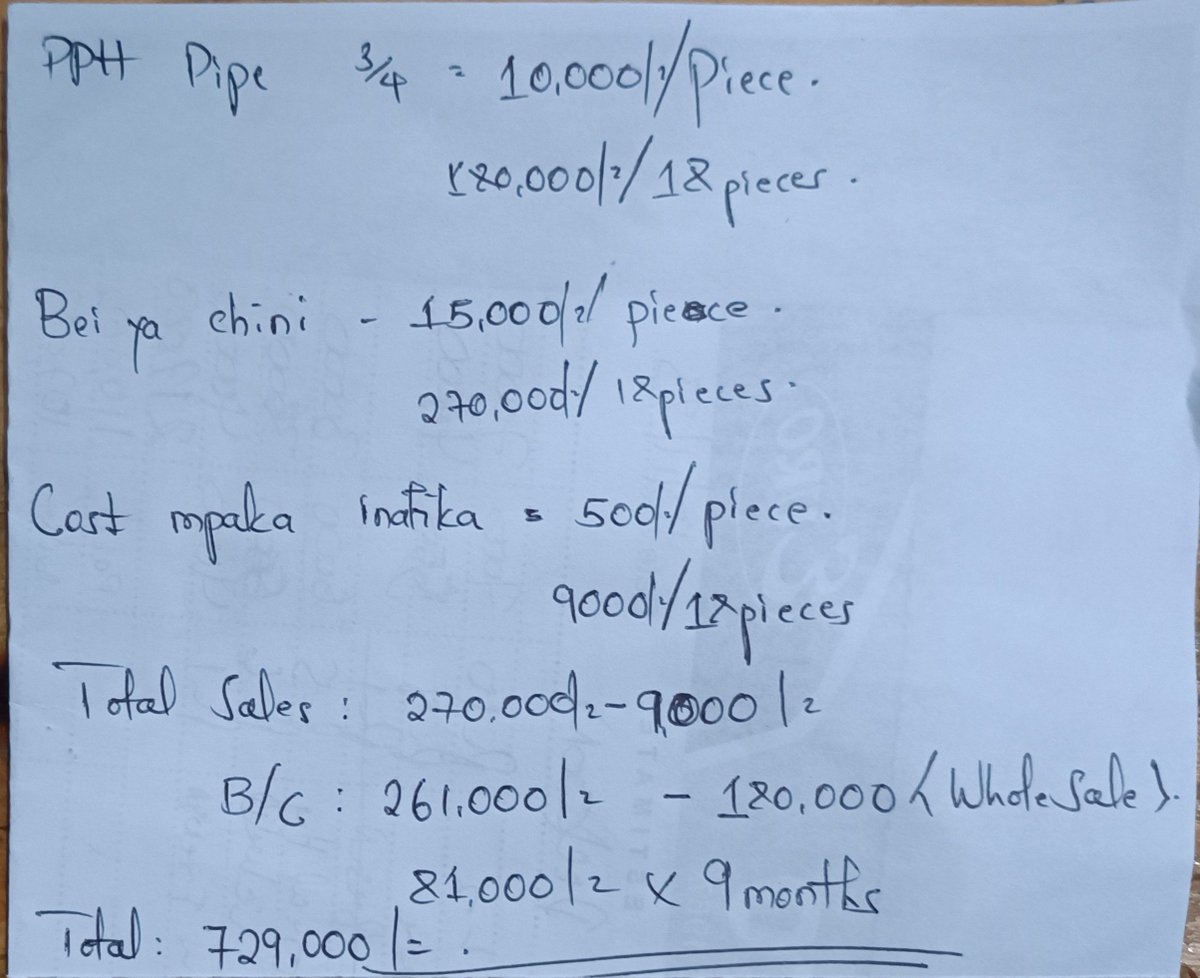 PPH Pipe 3/4 = 10,000/=/Piece.
180,000/=/18 pieces.
Bei ya chini - 15,000/=/ pieece.
270,000/=/ 18pieces.
Cost mpaka inafika = 500/=/ piece.
9000/=/18pieces
Total Sales : 270,000/= - 9,000/=
B/C : 261,000/= - 180,000 (WholeSale).
81,000/= x 9 months
Total : 729,000/= .